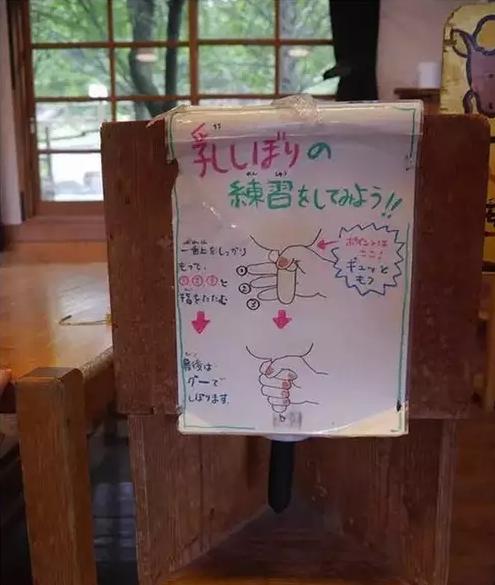 乳しぼりの
練習をしてみよう!!
一番上をしっかり
もって、
①②③と
指をたたむ
ポイントは
ここ!
ギュッと
もつ
①
②
③
最後は
グーで
しぼります